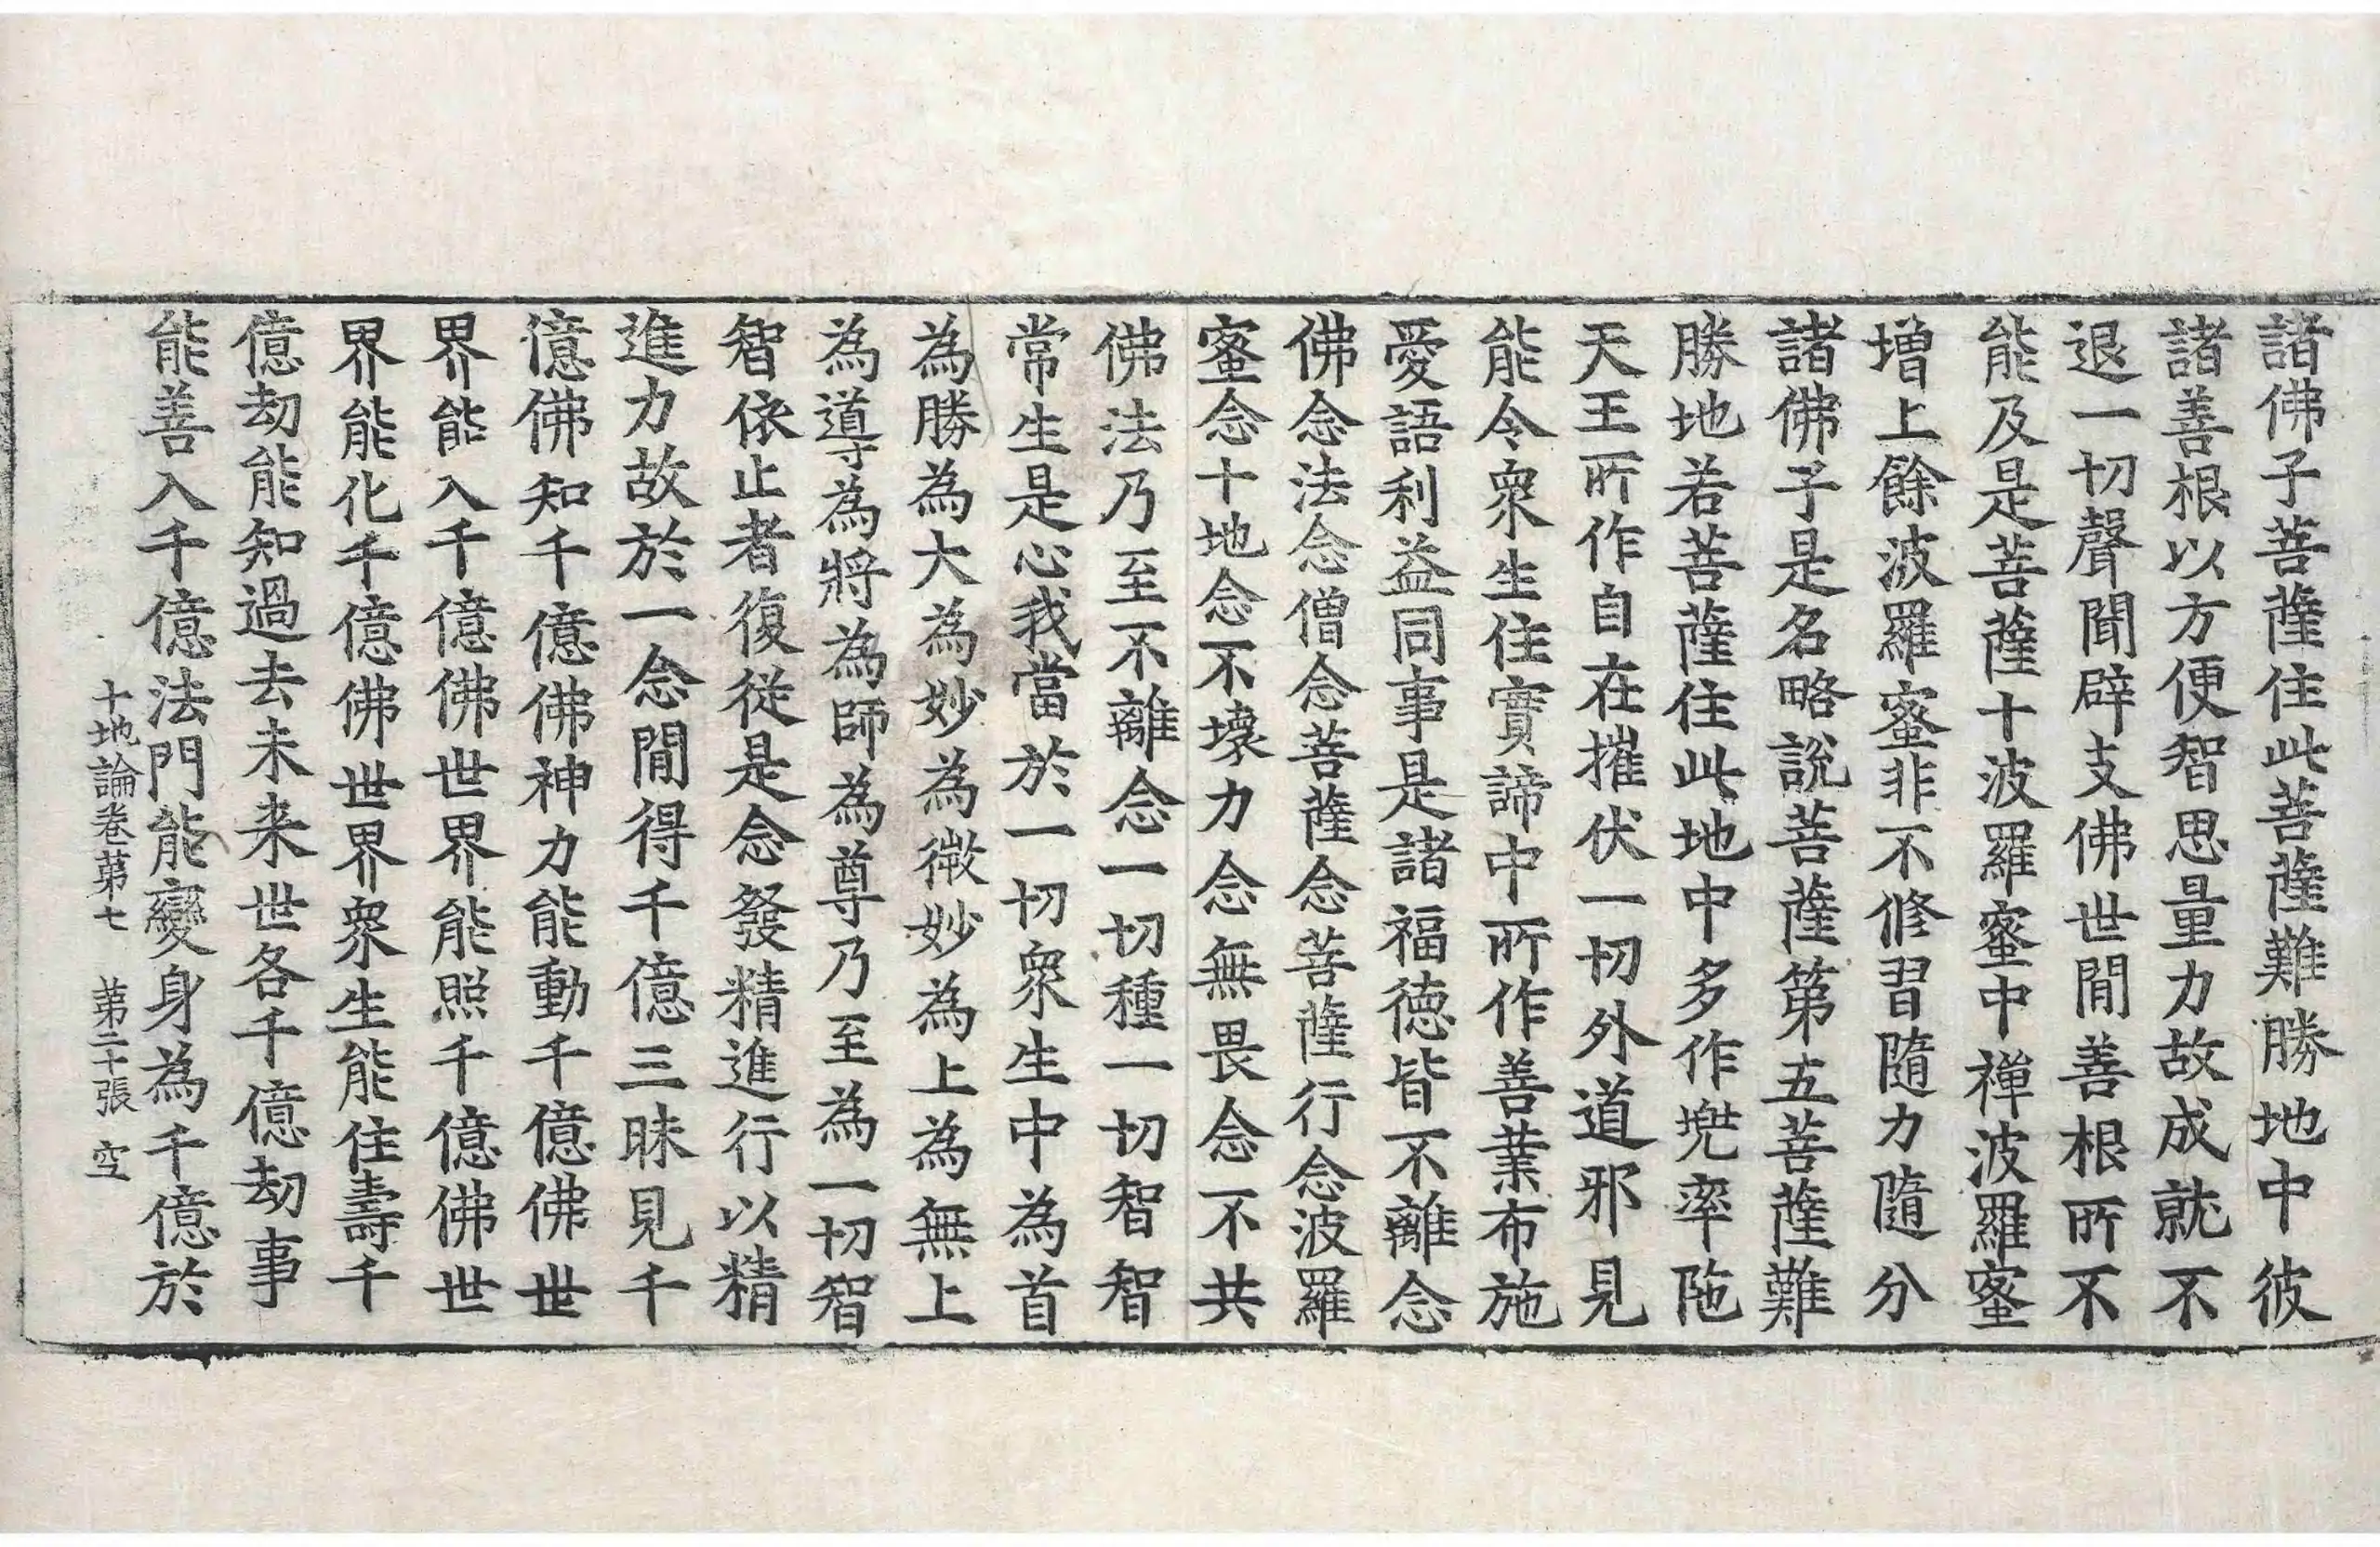 諸佛子菩薩住此菩薩難勝地中彼
諸善根以方便智思量力故成就不
退一切聲聞辟支佛世閒善根所不
能及是菩薩十波羅蜜中禪波羅蜜
增上餘波羅蜜非不修習隨力隨分
諸佛子是名略說菩薩第五菩薩難
勝地若菩薩住此地中多作兠率陁
天王所作自在摧伏一切外道邪見
能令衆生住實諦中所作善業布施
愛語利益同事是諸福德皆不離念
佛念法念僧念菩薩念菩薩行念波羅
蜜念十地念不壞力念無畏念不共
佛法乃至不離念一切種一切智智
常生是心我當於一切衆生中為首
為勝為大為妙為微妙為上為無上
為導為將為師為尊乃至為一切智
智依止者復從是念發精進行以精
進力故於一念閒得千億三昧見千
億佛知千億佛神力能動千億佛世
界能入千億佛世界能照千億佛世
界能化千億佛世界衆生能住壽千
億劫能知過去未来世各千億劫事
能善入千億法門能變身為千億於
十地論卷第七 第二十張 空